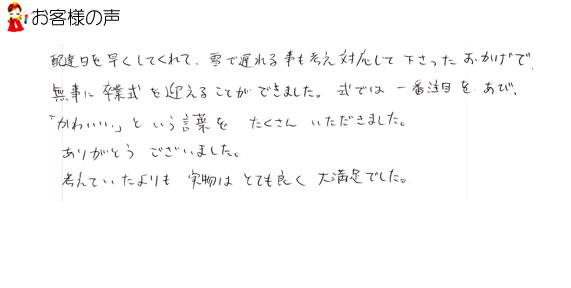 お客様の声
配達日を早くしてくれて、雪で遅れる事も考え対応して下さったおかげで、
無事に卒業式を迎えることができました。式では一番注目をあび、
「かわいい」という言葉をたくさんいただきました。
ありがとうございました。
考えていたよりも実物はとても良く大満足でした。